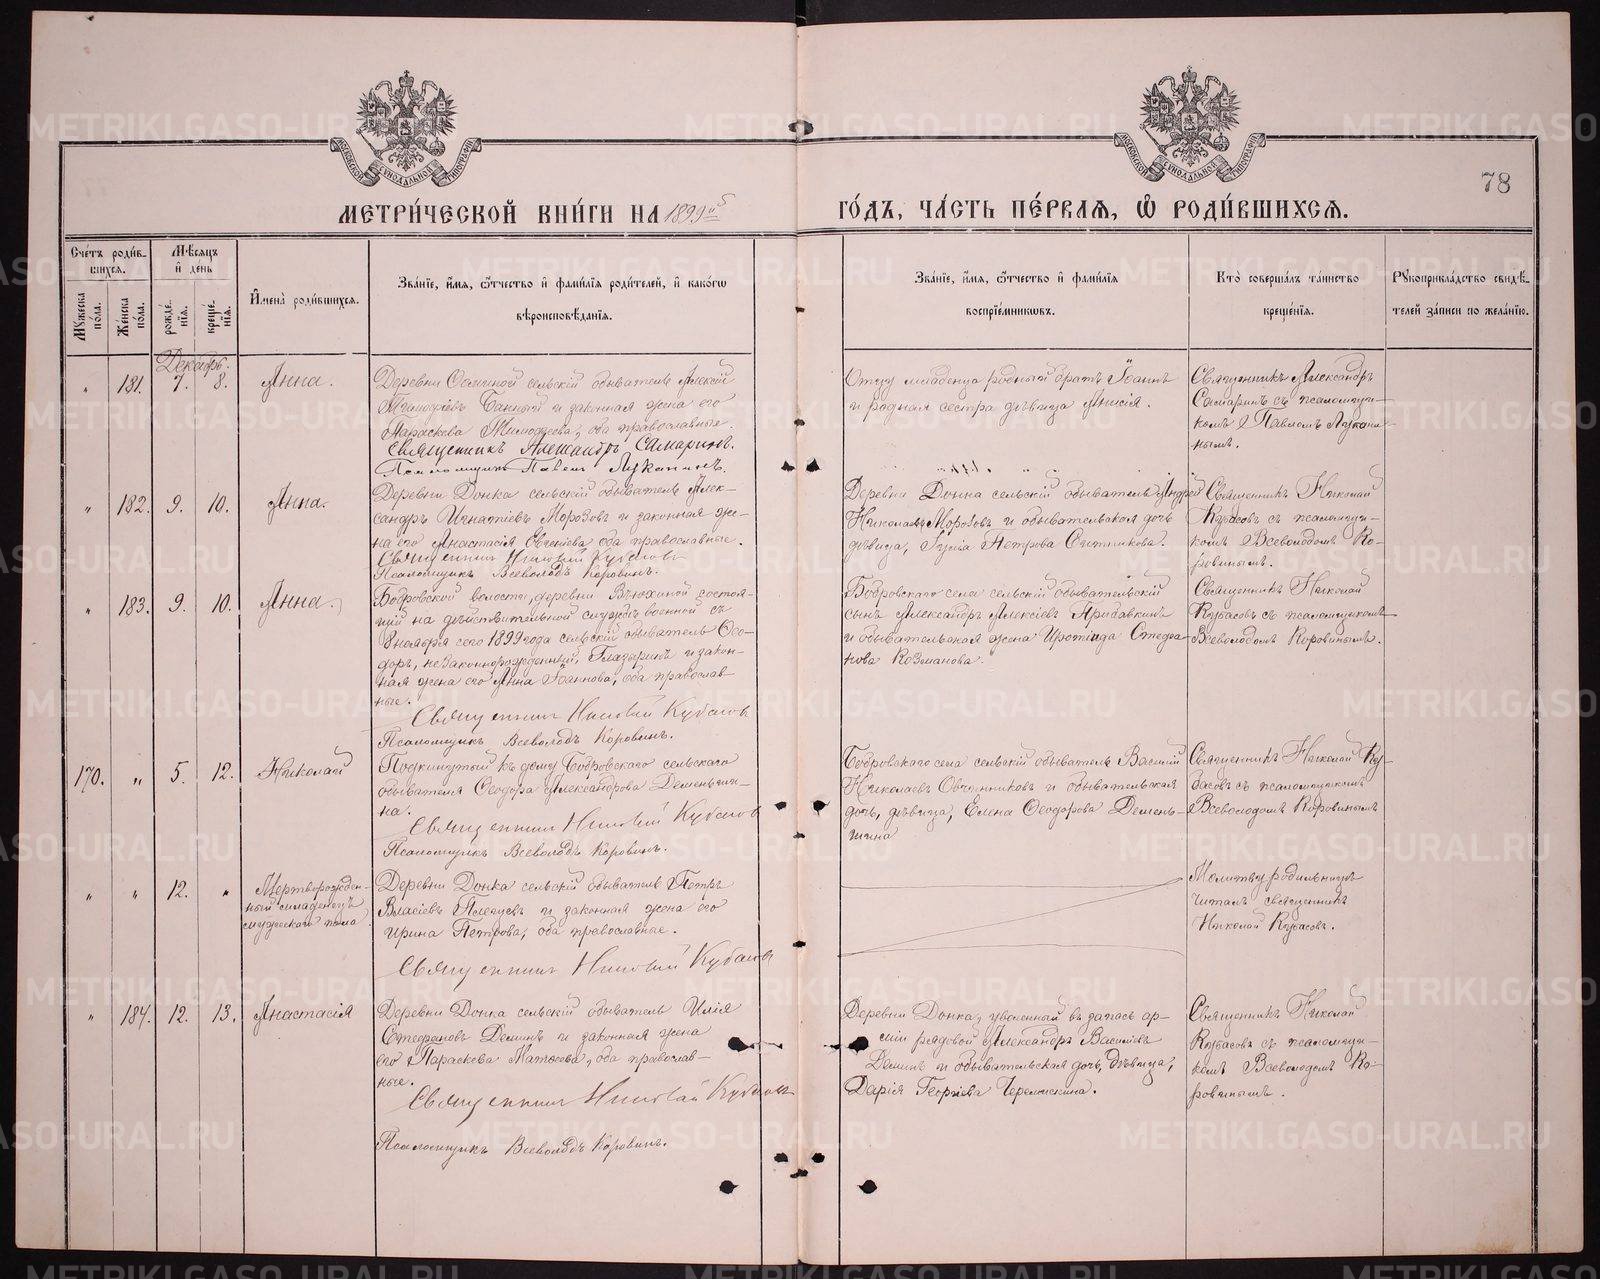 78
МЕТРИ́ЧЕСКОЙ КНИ́ГИ НА 1899й
ГО́ДЪ, ЧА́СТЬ ПЕ́РВАЯ, Ѡ РОДИ́ВШИХСЯ.
Сче́тъ роди́в-
шихся.
Мѣ́сяцъ
и҆ де́нь
Мꙋ́жеска по́ла.
Же́нска по́ла.
рожде́-
нїя.
креще́-
нїя.
И҆мена̀ роди́вшихся.
Зва́нїе, и҆́мя, ѻ҆́тчество и҆ фами́лїя роди́телей, и҆ како́гѡ
вѣроисповѣ́данїя.
Зва́нїе, и҆́мя, ѻ҆́тчество и҆ фами́лїя
воспрїе́мникѡвъ.
Кто̀ соверша́лъ та́инство
креще́нїя.
Рꙋкоприкла́дство свидѣ́-
телей за́писи по жела́нїю.
Декабрь.
„ 181. 7. 8. Анна.
Деревни Осминой сельскій обыватель Алексій
Тимоѳіевъ Банный и законная жена его
Параскева Тимоѳеева, оба православные.
Священникъ Александръ Самаринъ.
Псаломщикъ Павелъ Луканинъ.
Отцу младенца родный братъ Іоаннъ
и родная сестра дѣвица Анисія.
Священникъ Александръ
Самаринъ съ псаломщи-
комъ Павломъ Лукани-
нымъ.
„ 182. 9. 10. Анна.
Деревни Донка сельскій обыватель Алек-
сандръ Игнатіевъ Морозовъ и законная же-
на его Анастасія Евгеніева оба православные.
Священникъ Николай Кубасовъ
Псаломщикъ Всеволодъ Коровинъ.
Деревни Донка сельскій обыватель Андрей
Николаевъ Морозовъ и обывательская дочь
дѣвица, Петрова Ситникова.
Священникъ Николай
Кубасовъ съ псаломщи-
комъ Всеволодомъ Ко-
ровинымъ.
„ 183. 9. 10. Анна.
Бобровской волости, деревни Вьюхиной состоя-
щій на дѣйствительной службѣ военной съ
8 ноября сего 1899 года сельскій обыватель Ѳео-
доръ, незаконнорожденный, Глазыринъ и закон-
ная жена его Анна Іоаннова, оба православ-
ные.
Священникъ Николай Кубасовъ
Псаломщикъ Всеволодъ Коровинъ.
Бобровскаго села сельскій обывательскій
сынъ Александръ Алексіевъ Прибавкинъ
и обывательская жена Иротіида Стефа-
нова Козманова.
Священникъ Николай
Кубасовъ съ псаломщикомъ
Всеволодомъ Коровинымъ.
170. „ 5. 12. Николай
Подкинутый къ дому Бобровскаго сельскаго
обывателя Ѳеодора Александрова Деменьши-
на.
Священникъ Николай Кубасовъ
Псаломщикъ Всеволодъ Коровинъ.
Бобровскаго села сельскій обыватель Василій
Николаевъ Овчинниковъ и обывательская
дочь, дѣвица, Елена Ѳеодорова Демень-
шина
Священникъ Николай Ку-
басовъ съ псаломщикомъ
Всеволодомъ Коровинымъ
„ „ 12. „ Мертворожден-
ный младенецъ
мужескаго пола
Деревни Донка сельскій обыватель Петръ
Власіевъ и законная жена его
Ирина Петрова, оба православные.
Священникъ Николай Кубасовъ
Молитву родильницѣ
читалъ священникъ
Николай Кубасовъ.
„ 184. 12. 13. Анастасія
Деревни Донка сельскій обыватель Илія
Стефановъ Деминъ и законная жена
его Параскева Матѳеева, оба православ-
ные.
Священникъ Николай Кубасовъ
Псаломщикъ Всеволодъ Коровинъ.
Деревни Донка, уволенный въ запасъ ар-
міи рядовой Александръ Василіевъ
Деминъ и обывательская дочь, дѣвица,
Дарія Георгіева Черемискина.
Священникъ Николай
Кубасовъ съ псаломщи-
комъ Всеволодомъ Ко-
ровинымъ.
METRIKI.GASO-URAL.RU